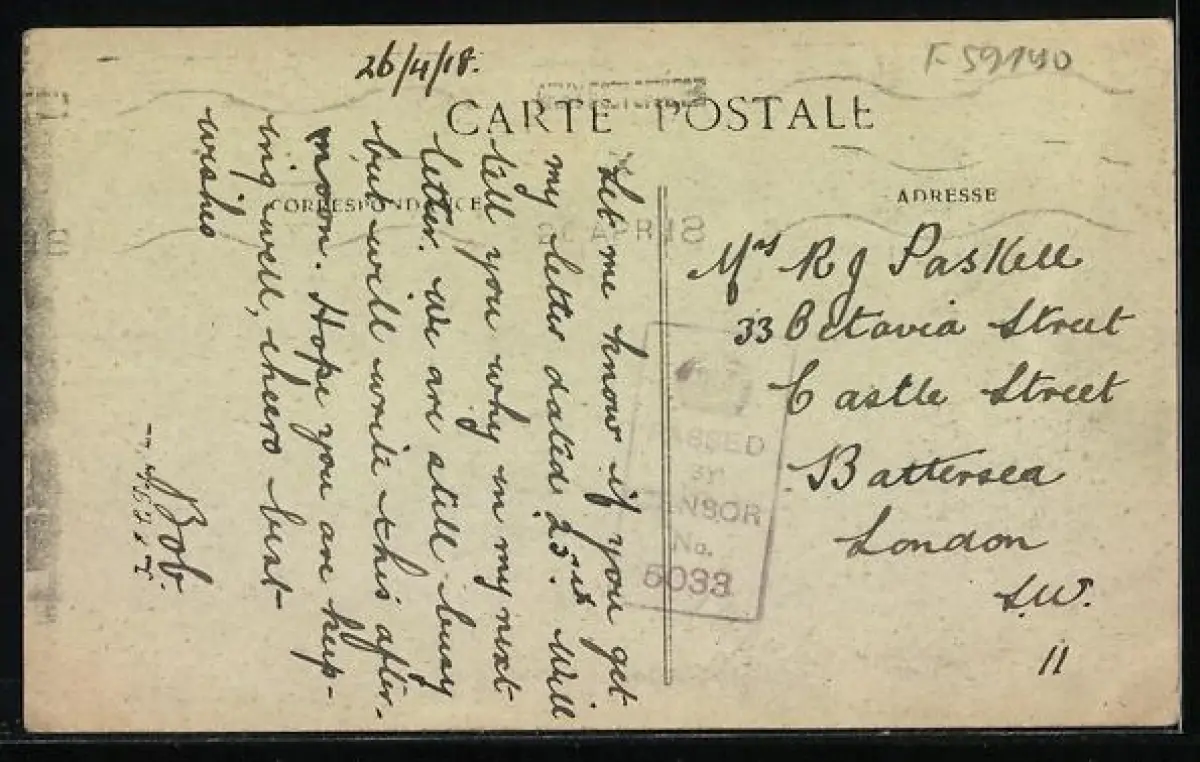 26/4/18.
F 59140
CARTE POSTALE
CORRESPONDANCE
ADRESSE
Let me know if you get
my letter dated 25th. Will
tell you why in my next
letter. We are still busy
but will write this after-
noon. Hope you are keep-
ing well, cheero best
wishes
Bob.
Mrs R J Paskell
33 Octavia Street
Castle Street
Battersea
London
S.W.
11
APR 18
PASSED
BY
CENSOR
No.
5033